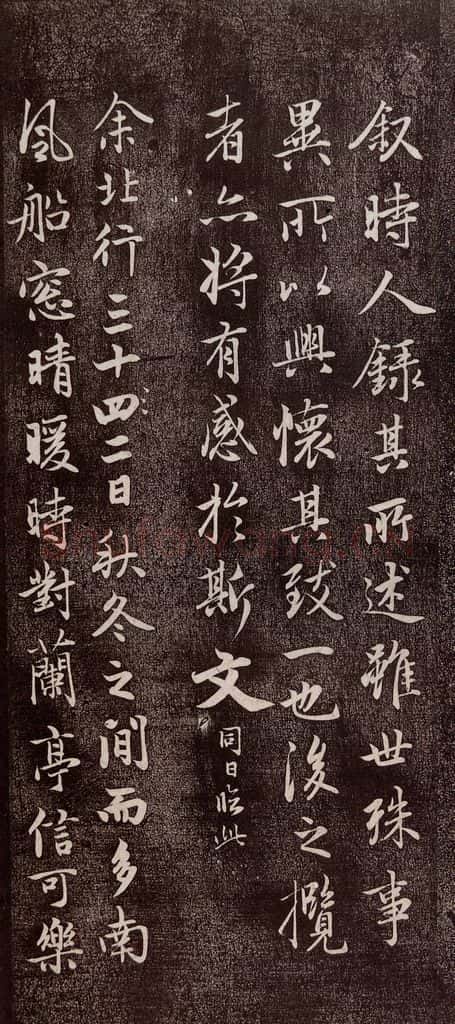 叙時人錄其所述雖世殊事
異所以興懷其致一也後之攬
者亦將有感於斯文
同日臨此
余北行三十四二日秋冬之間而多南
風船窓晴暖時對蘭亭信可樂